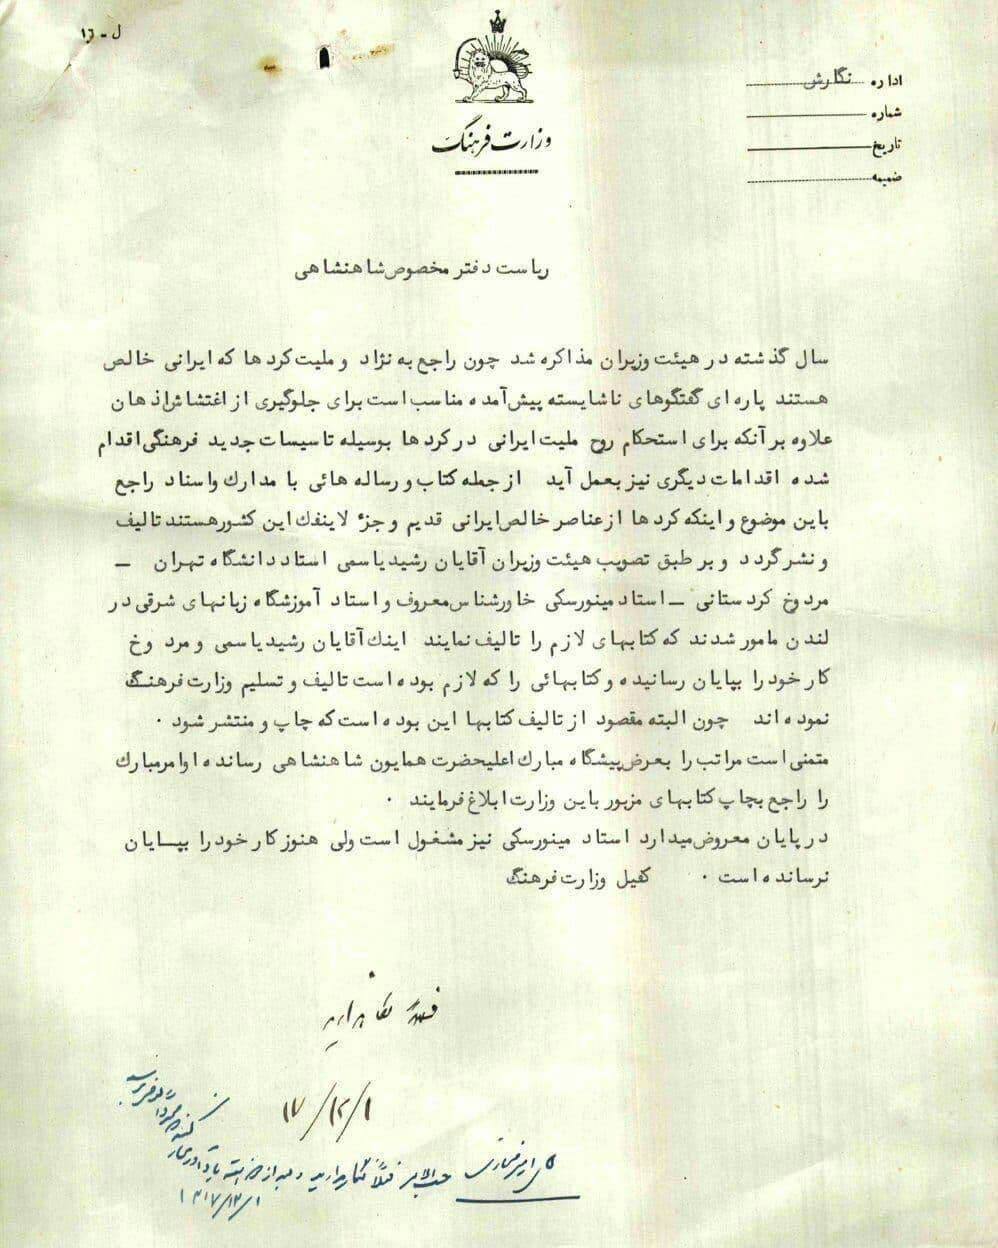 ل - ١٦
وزارت فرهنگ
اداره نگارش
شماره
تاریخ
ضمیمه
ریاست دفتر مخصوص شاهنشاهی
سال گذشته در هیئت وزیران مذاکره شد چون راجع به نژاد و ملیت کرد ها که ایرانی خالص
هستند پاره ای گفتگوهای ناشایسته پیش آمده مناسب است برای جلوگیری از اغتشاش اذهان
علاوه بر آنکه برای استحکام روح ملیت ایرانی در کرد ها بوسیله تاسیسات جدید فرهنگی اقدام
شده اقدامات دیگری نیز بعمل آید از جمله کتاب و رساله هائی با مدارك و اسناد راجع
باین موضوع و اینکه کرد ها از عناصر خالص ایرانی قدیم و جزء لاینفك این کشور هستند تالیف
و نشر گردد و بر طبق تصویب هیئت وزیران آقایان رشید یاسمی استاد دانشگاه تهران -
مردوخ کردستانی - استاد مینورسکی خاورشناس معروف و استاد آموزشگاه زبانهای شرقی در
لندن مامور شدند که کتابهای لازم را تالیف نمایند اینك آقایان رشید یاسمی و مردوخ
کار خود را بپایان رسانیده و کتابهائی را که لازم بوده است تالیف و تسلیم وزارت فرهنگ
نموده اند چون البته مقصود از تالیف کتابها این بوده است که چاپ و منتشر شود ٠
متمنی است مراتب را بعرض پیشگاه مبارك اعلیحضرت همایون شاهنشاهی رسانده اوامر مبارك
را راجع بچاپ کتابهای مزبور باین وزارت ابلاغ فرمایند ٠
در پایان معروض میدارد استاد مینورسکی نیز مشغول است ولی هنوز کار خود را بپایان
نرسانده است ٠ کفیل وزارت فرهنگ
١٧/١٢/١
١٣١٧/١٢/١